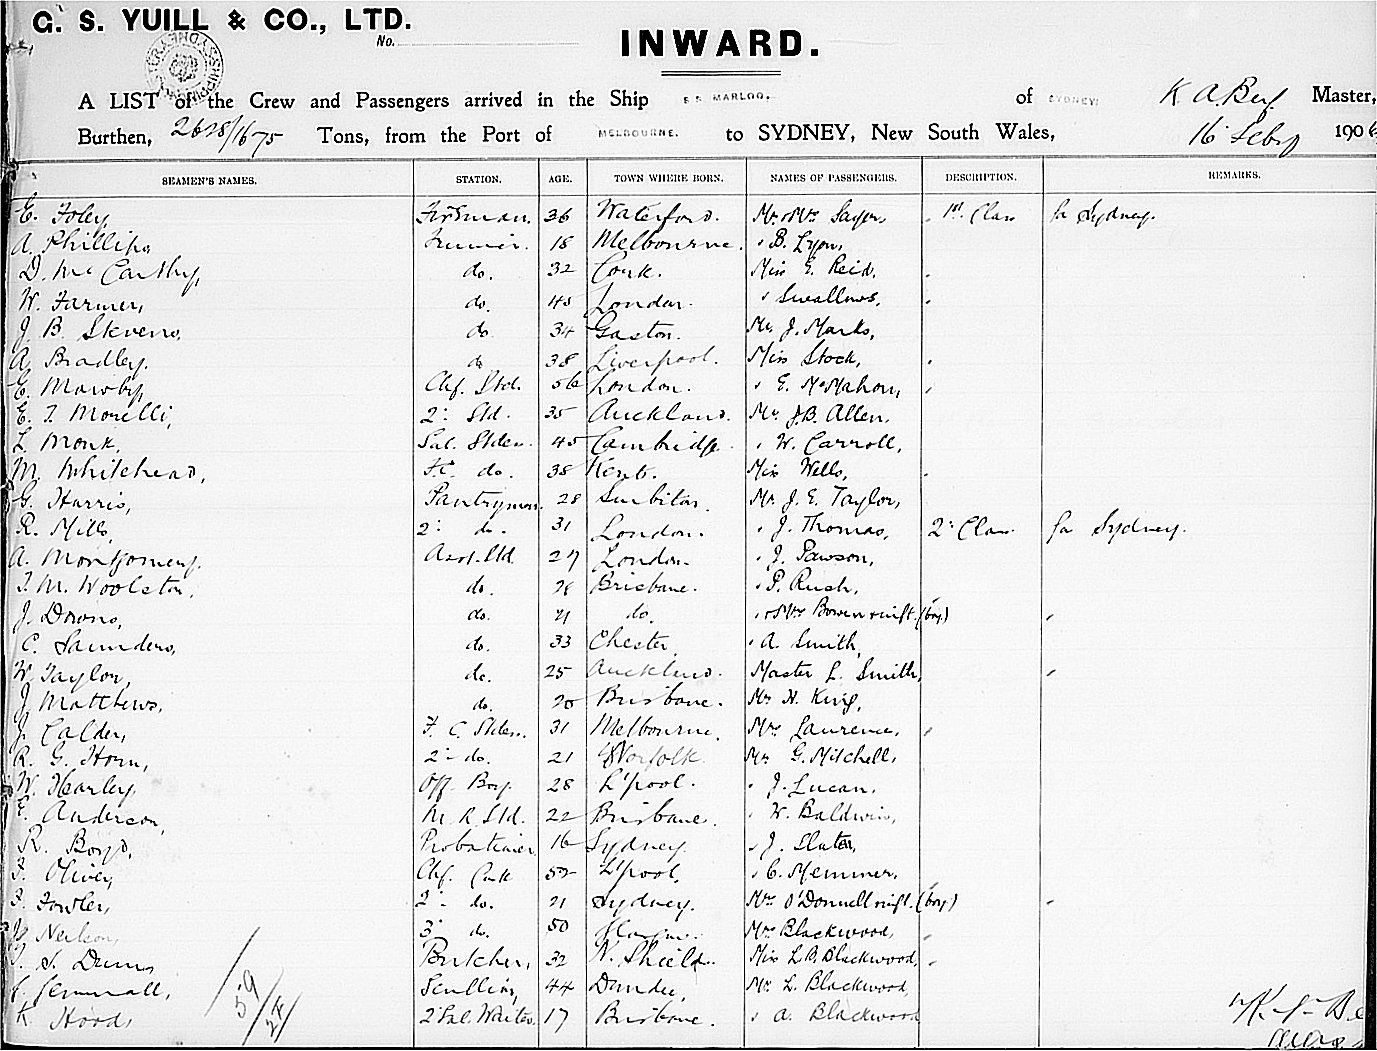 G. S. YUILL & CO., LTD.
No.
INWARD.
A LIST of the Crew and Passengers arrived in the Ship S.S. MARLOO, of SYDNEY, Master,
Burthen, 2628/1675 Tons, from the Port of MELBOURNE. to SYDNEY, New South Wales, 16 Feby 190
SEAMEN'S NAMES. STATION. AGE. TOWN WHERE BORN. NAMES OF PASSENGERS. DESCRIPTION. REMARKS.
E. Foley, Fireman. 36 Waterford. Mr & Mrs Sayers 1st Class for Sydney.
A. Phillips, Trimmer. 18 Melbourne. " B. Lyons,
D. McCarthy, do. 32 Cork. Miss E. Reid,
W. Farmer, do. London. " Swallows,
J. B Stevens, do 34 Gaston. Mr J. Marks,
A. Bradley. do 38 Liverpool. Miss Stock,
E. Mawby, Chf. Std. 56 London. " E. McMahon,
E. T. Morelli, 2' Std. 35 Auckland. Mr. J.B. Allen,
L. Monk, Sal. Stdess. 45 Cambridge. " W. Carroll,
M. Whitehead, F.C. do. 38 Kent. Miss Wells,
G. Harris, Pantryman. 28 Surbiton. Mr. J. E. Taylor,
R. Mills, 2' do. 31 London. " J. Thomas, 2' Class for Sydney.
A. Montgomery. Asst. Std. 27 London. " J. Pawson,
T. M. Woolston, do. 28 Brisbane. " P. Rush,
J. Downs, do. 21 do. " & Mrs Bowen & inft. (boy)
C. Saunders, do. 33 Chester, " A. Smith,
W. Taylor, do. 25 Auckland. Master L. Smith,
J. Matthews, do. 20 Brisbane. Mr H. King,
J. Calder, F. C. Stdess. 31 Melbourne, Mrs Laurence,
R. G. Horn, 2' do. 21 Norfolk. Mr G. Mitchell,
W. Harley, Off. Boy. 28 L'pool. " J. Lucan.
E. Anderson, M. R. Std. 22 Brisbane. " W. Baldwin,
R. Boyd, Probationer. 16 Sydney. " J. Slater,
F. Oliver, Chf. Cook 52 L'pool. " C. Memmer,
F. Fowler, 2' do. 21 Sydney. Mrs O'Donnell & inft. (boy)
Neilson, 3' do. 50 Mrs Blackwood,
S. Dunn, Butcher, 32 N. Shields. Miss L.B. Blackwood,
Gemmall, Scullion, 44 Dundee, Mr L. Blackwood,
K. Hood, 2' Sal. Waiter. 17 Brisbane. " A. Blackwood
59/24/